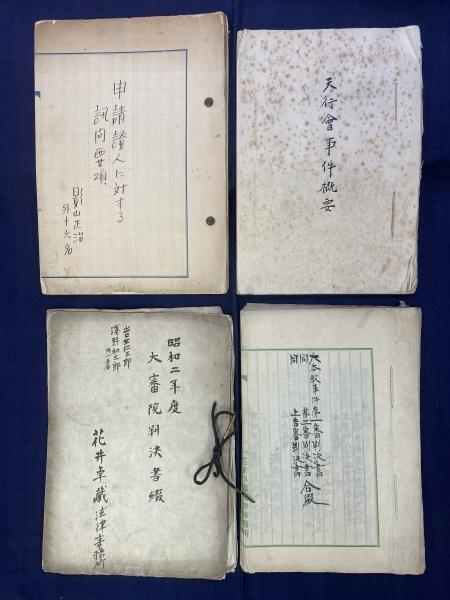 申請證人に対する
訊問要項
影山正治
外十六名
天行會事件概要
昭和二年度
大審院判決書綴
出口王仁三郎
浅野和三郎
外一名
花井卓蔵法律事務所
大本教事件第一審判決書
同 第二審判決書 合綴
同 上告審判決書